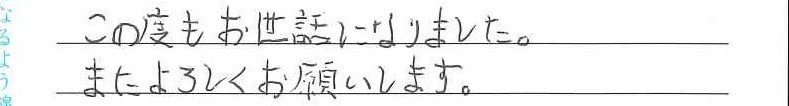 この度もお世話になりました。
またよろしくお願いします。
なるよう